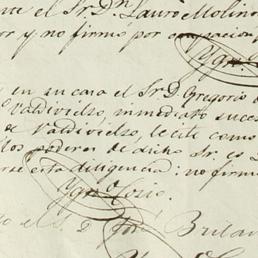 nte el Sr. Dn. Lauro Molino
or y no firmó por
Ygn.
en su casa el Sr. D. Gregorio
Valdivielso, inmediato suces
de Valdivielso, le cité como
los poderes de dicho Sr. es
rse esta diligencia: no firm
Ygn. Cosio.
o el S. D. José